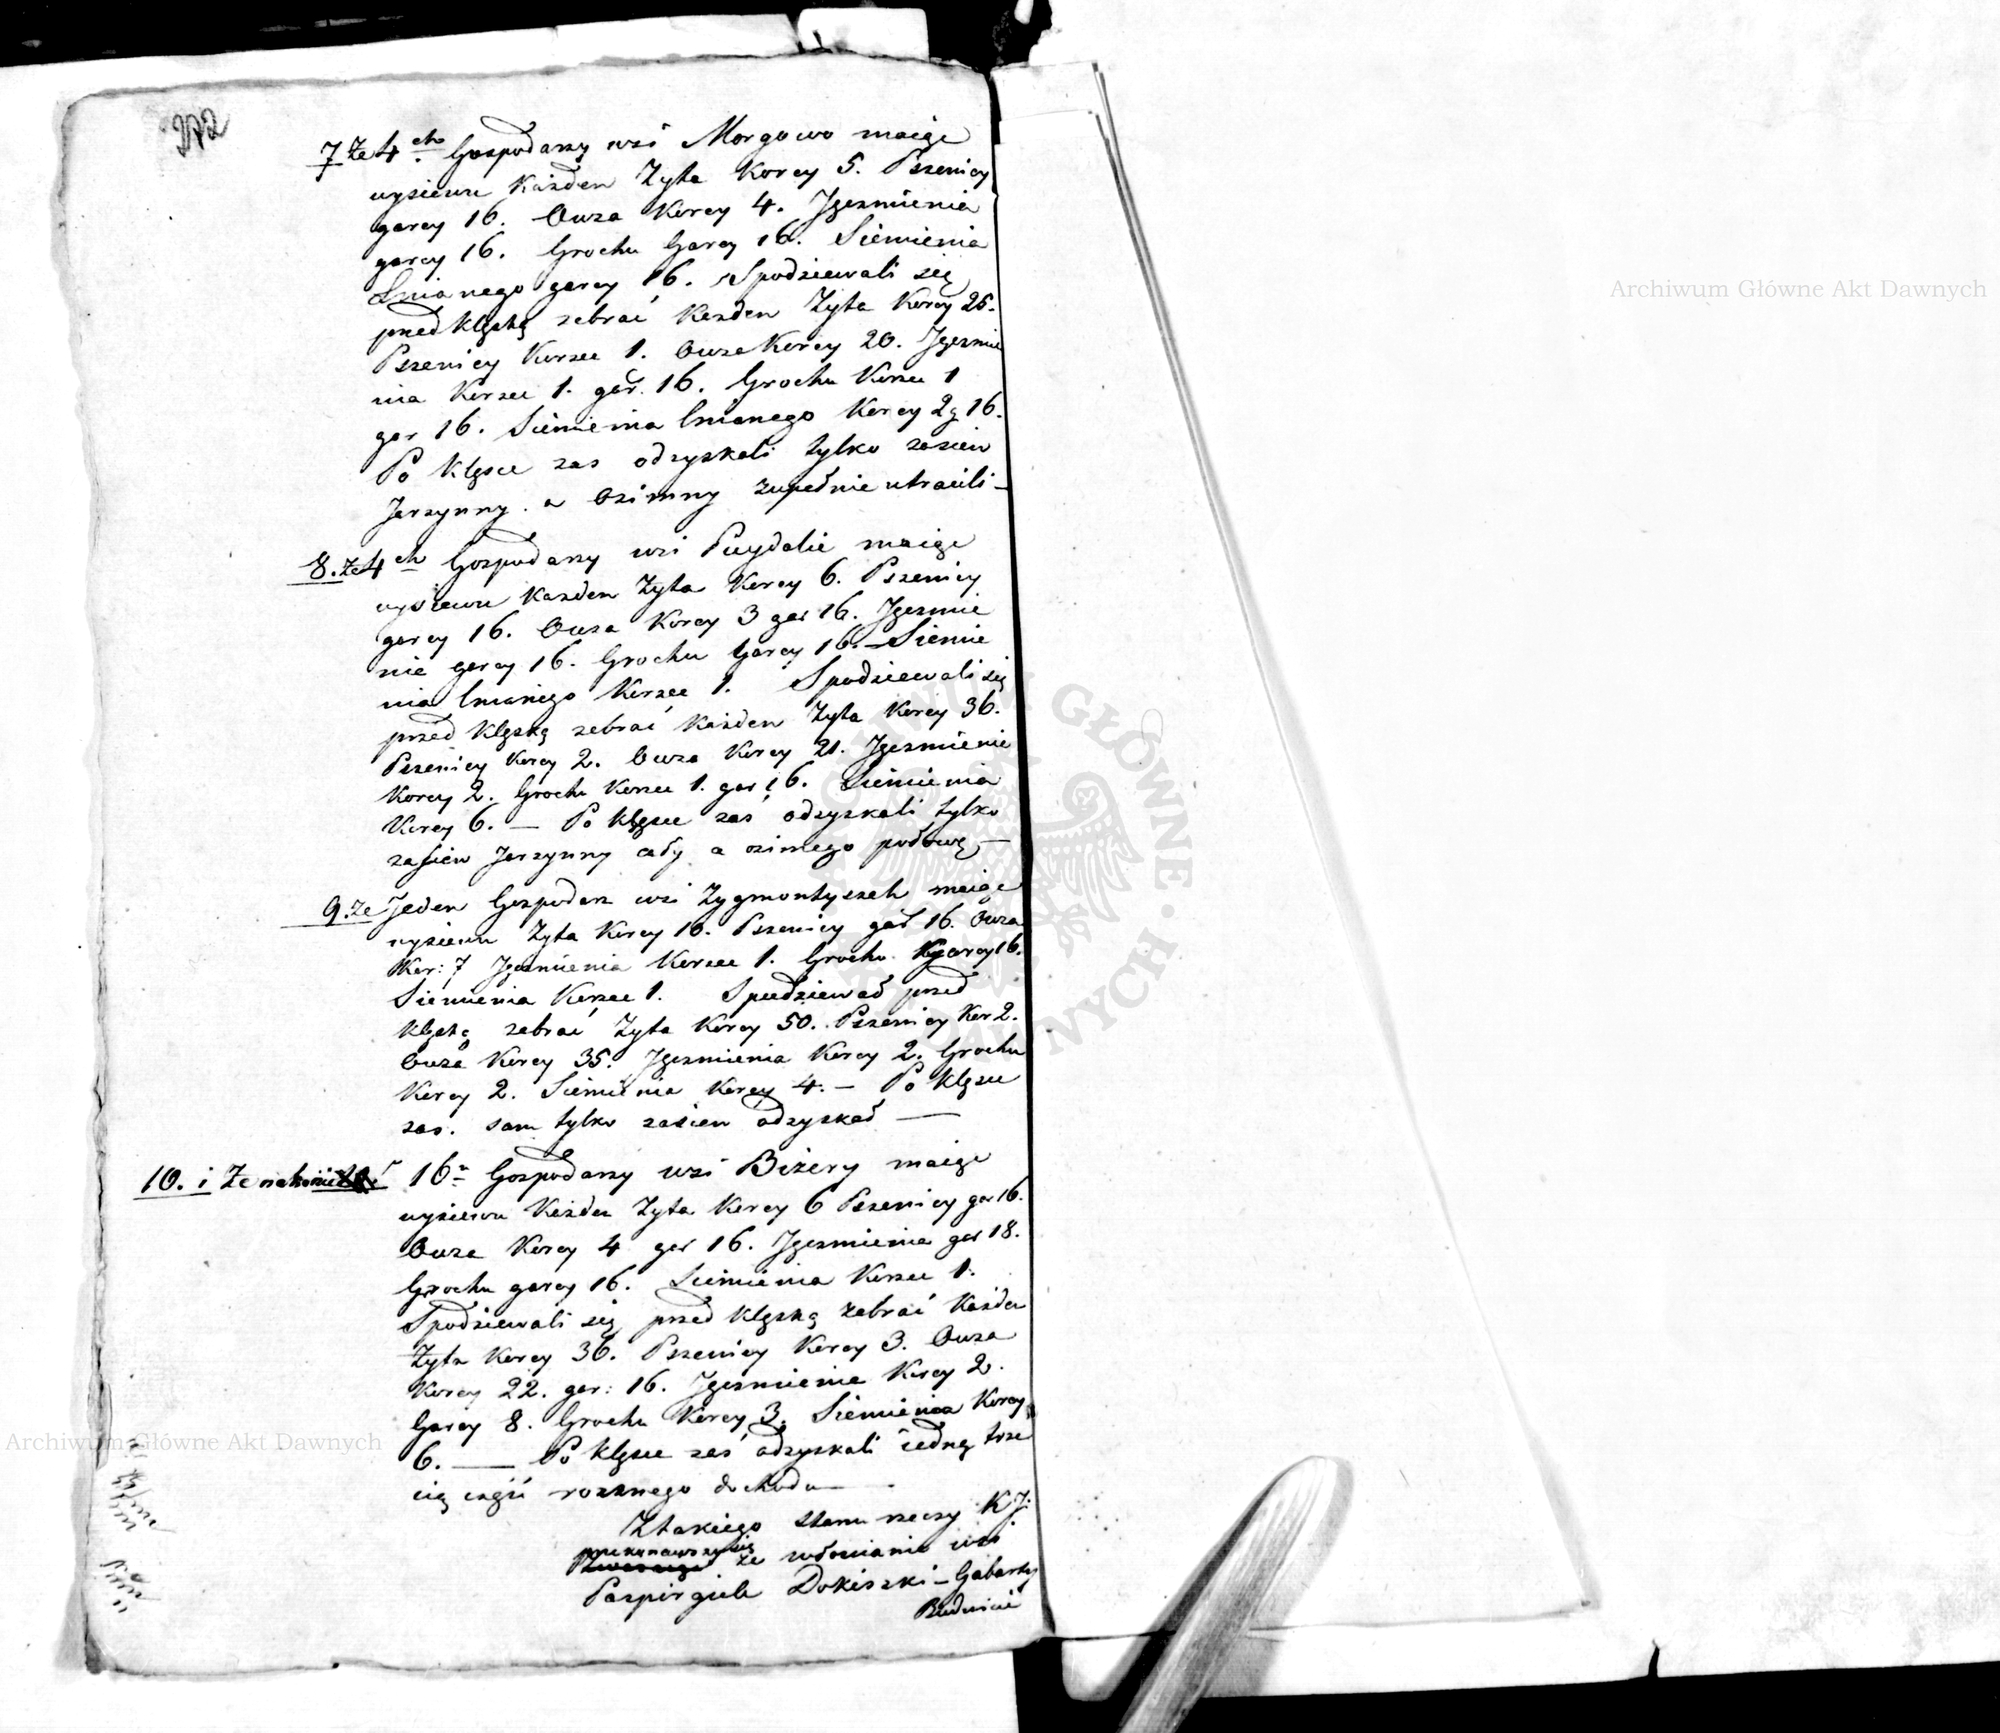 272
7 Że 4ch Gospodarzy wsi Morgowo maiąc
wysiewu Każden Żyta Korcy 5. Pszenicy
garcy 16. Owsa Korcy 4. Jęczmienia
garcy 16. Grochu Garcy 16. Siemienia
Lnianego garcy 16. Spodziewali się
przed klęską zebrać Każden Żyta Korcy 25.
Pszenicy Korzec 1. Owsa Korcy 20. Jęczmie
nia Korzec 1. gar. 16. Grochu Korzec 1
gar 16. Siemienia lnianego Korcy 2 g 16.
Po klęsce zas odzyskali tylko zasiew
Jarzynny. a Ozimny zupełnie utracili —
8. Że 4ch Gospodarzy wsi Puydalie maiąc
wysiewu Każden Żyta Korcy 6. Pszenicy
garcy 16. Owsa Korcy 3 gar 16. Jęczmie
nie garcy 16. Grochu Garcy 16. — Siemie
nia lnianego Korzec 1. Spodziewali się
przed klęską zebrać Każden Żyta Korcy 36.
Pszenicy Korcy 2. Owsa Korcy 21. Jęczmienie
Korcy 2. Grochu Korzec 1. gar 16. Siemienia
Korcy 6. — Po klęsce zaś odzyskali tylko
zasiew Jarzynny cały a ozimego połowę —
9. Że Jeden Gospodarz wsi Zygmontyszek maiąc
wysiewu Żyta Korcy 10. Pszenicy gar 16. Owsa
Kor: 7 Jęczmienia Korzec 1. Grochu garcy 16.
Siemienia Korzec 1. Spodziewał przed
klęską zebrać Żyta Korcy 50. Pszenicy Kor 2.
Owsa Korcy 35. Jęczmienia Korcy 2. Grochu
Korcy 2. Siemienia Korcy 4. — Po klęsce
zas. sam tylko zasiew odzyskał —
10. i Że nakoniec 16u Gospodarzy wsi Biżery maiąc
wysiewu Każden Żyta Korcy 6 Pszenicy gar 16.
Owsa Korcy 4 gar 16. Jęczmienia gar 18.
Grochu garcy 16. Siemienia Korzec 1.
Spodziewali się przed klęską zebrać Każden
Żyta Korcy 36. Pszenicy Korcy 3. Owsa
Korcy 22. gar: 16. Jęczmienia Korcy 2.
Garcy 8. Grochu Korcy 3. Siemienia Korcy
6. — Po klęsce zaś odzyskali iedną trze
cią część rocznego dochodu —
Z takiego stanu rzeczy K J:
przekonawszy się że włościanie wsi
Paspirgiele Dokiszki — Gabarty
Budwicie
Archiwum Główne Akt Dawnych
Archiwum Główne Akt Dawnych